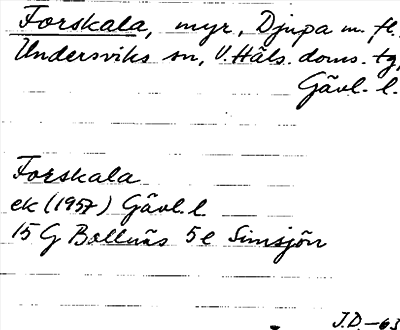 Forskala, myr, Djupa m. fl.,
Undersviks sn, V. Häls. doms. tg,
Gävl. l.
Forskala
ek (1957) Gävl. l
15 G Bollnäs 5e Simsjön
J.D. -63